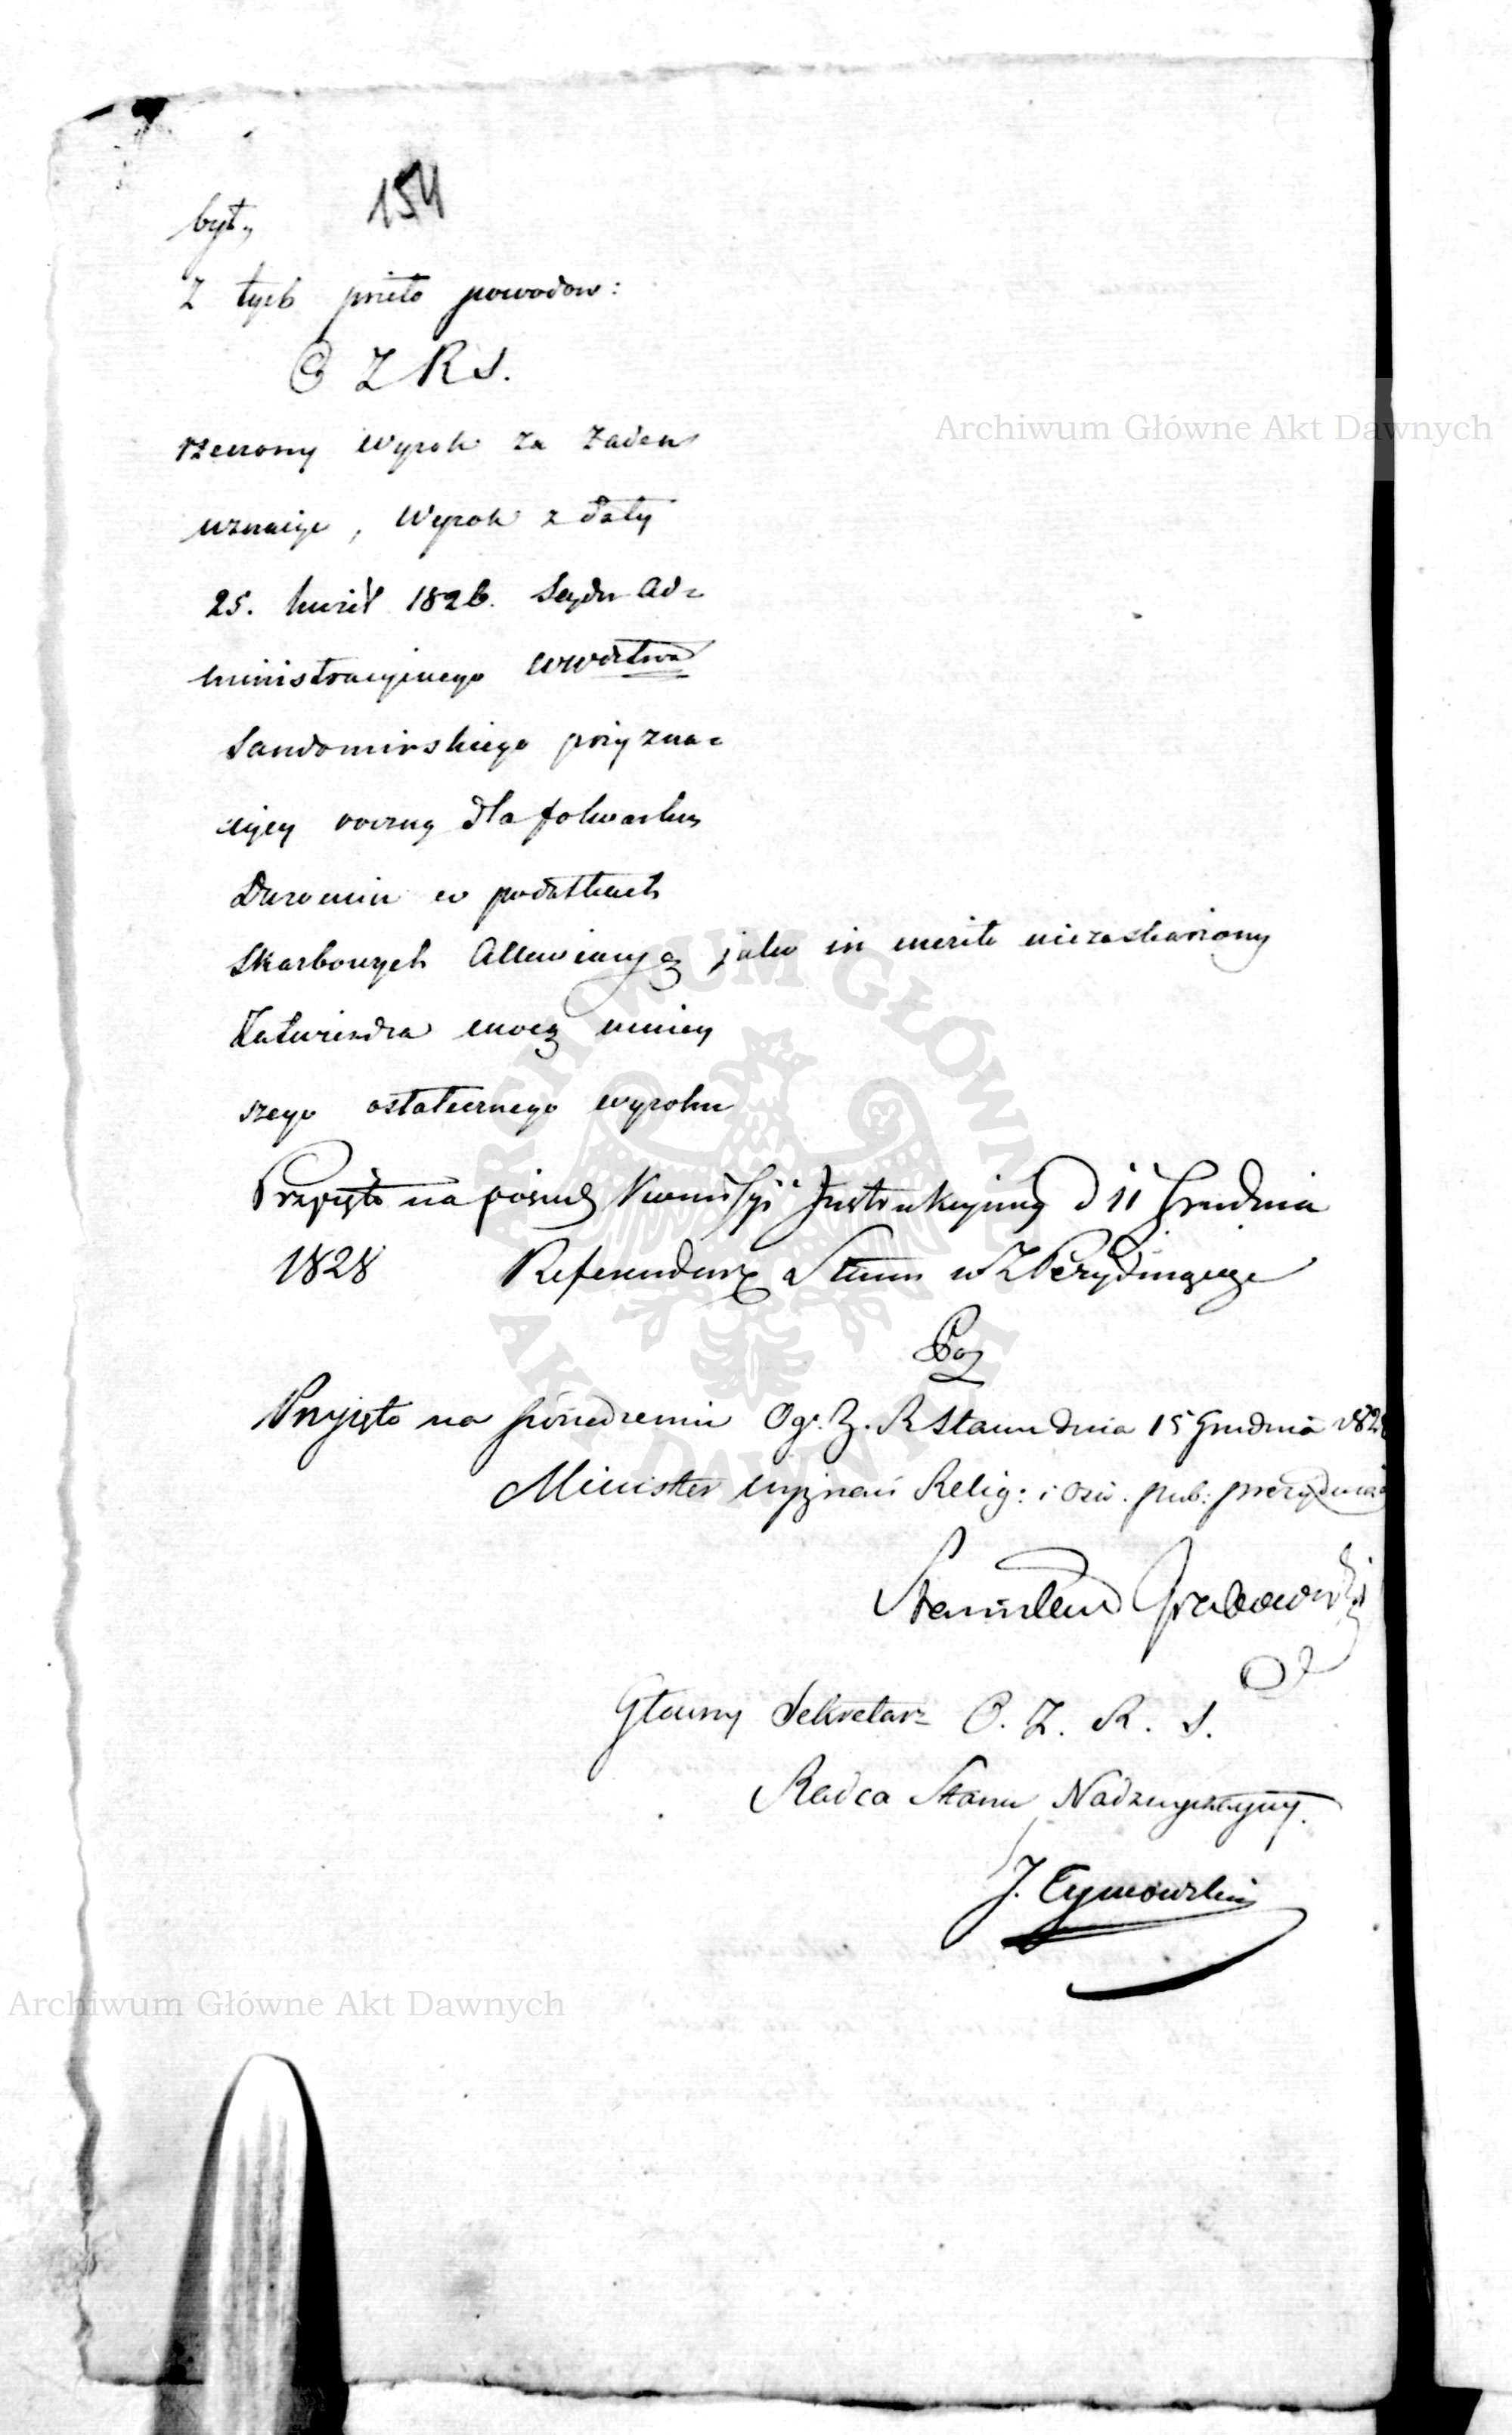 154
był,
Z tych przeto powodow:
O Z R S.
rzeczony Wyrok za żaden
uznaige, Wyrok z daty
25. kwiet 1826. Sądu Ad=
ministracyinego Wwdztwa
Sandomirskiego przyzna=
iący roczną dla folwarku
w podatkach
Skarbowych Allewiacyą jako in merito niezaskarżony
Zatwierdza mocą niniey
szego ostatecznego wyroku
Przyięto na posied Kommissyi Instrukcyiney d 11 Grudnia
1828 Referendarz Stanu w Z Prezyduiącego
Przyięto na posiedzeniu Og. Z. R Stanu dnia 15 Grudnia 182
Minister wyznań Relig: i Ośw. pub: prezyduiąc
Stanisław Grabowski
Główny Sekretarz O. Z. R. S.
Radca Stanu Nadzwyczayny.
J. Tymowski
Archiwum Główne Akt Dawnych
ARCHIWUM GŁÓWNE AKT DAWNYCH
Archiwum Główne Akt Dawnych